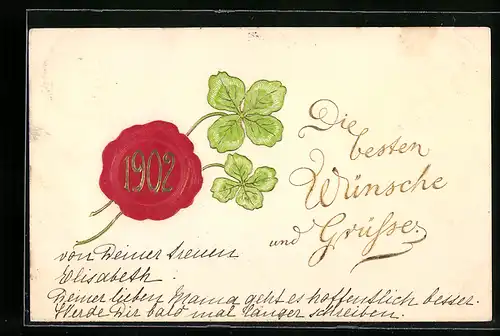 1902
Die
besten
Wünsche
und Grüsse.
von Deiner treuen
Elisabeth.
Deiner lieben Mama geht es hoffentlich besser.
Werde Dir bald mal länger schreiben.